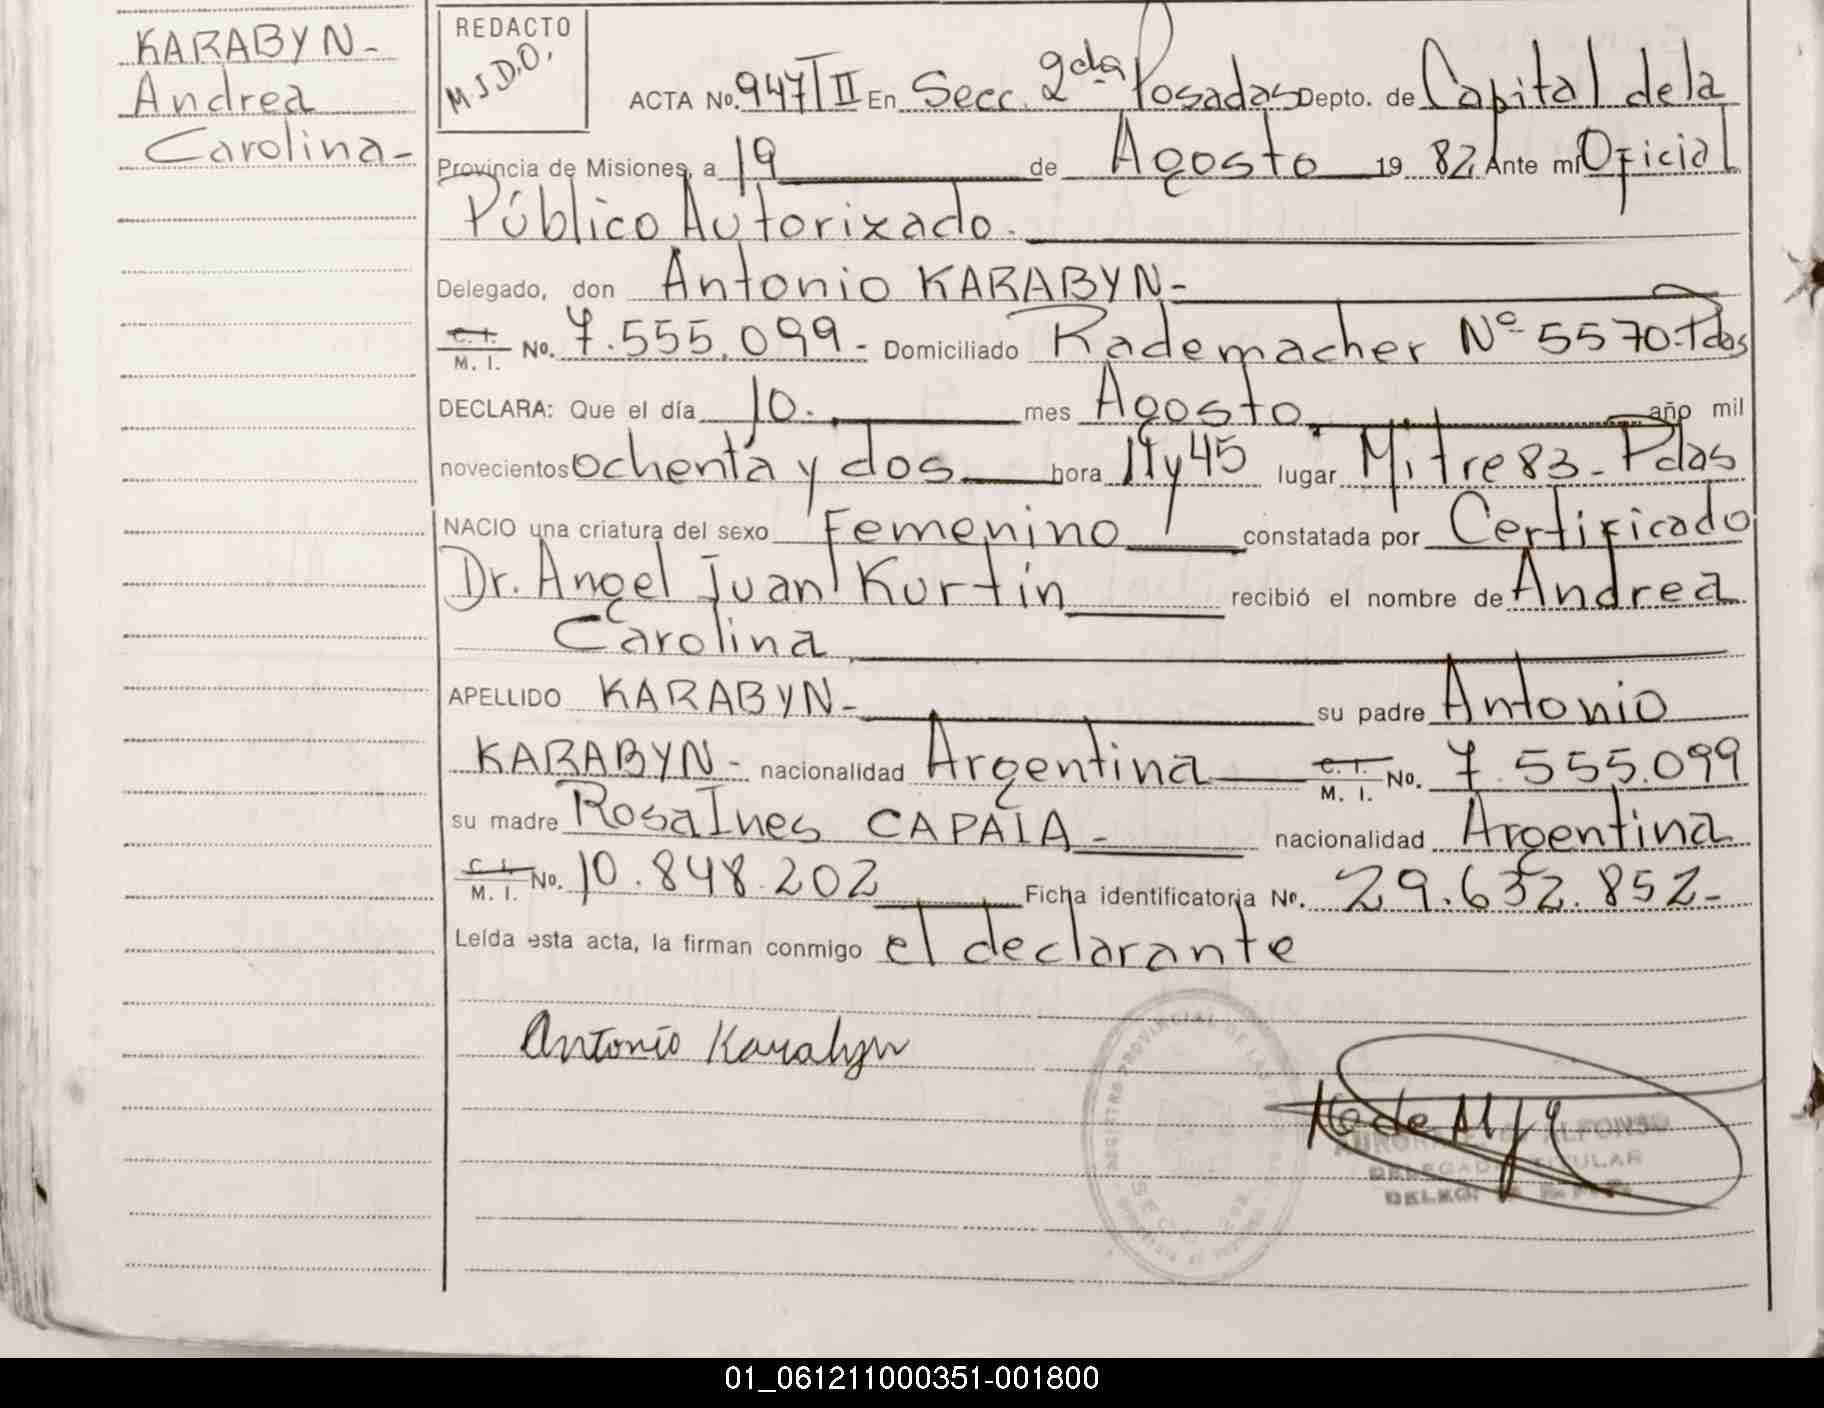 KARABYN-
Andrea
Carolina-
REDACTO
M.J.D.O.
ACTA No. 947/II En Secc. 2da Posadas Depto. de Capital de la
Provincia de Misiones, a 19 de Agosto 1982, Ante mí Oficial
Público Autorizado.
Delegado, don Antonio KARABYN-
C. I. / M. I. No. 7.555.099- Domiciliado Rademacher Nº 5570-Pdas
DECLARA: Que el día 10. mes Agosto año mil
novecientos ochenta y dos hora 11y45 lugar Mitre 83- Pdas
NACIO una criatura del sexo Femenino constatada por Certificado
Dr. Angel Juan Kurtin recibió el nombre de Andrea
Carolina
APELLIDO KARABYN- su padre Antonio
KARABYN- nacionalidad Argentina C. I. / M. I. No. 7.555.099
su madre Rosa Ines CAPAIA- nacionalidad Argentina
C. I. / M. I. No. 10.848.202 Ficha identificatoria Nº. 29.632.852-
Leída esta acta, la firman conmigo el declarante
Antonio Karabyn
REGISTRO PROVINCIAL DE LAS
ALFONSO
DELEGADO TITULAR
01_061211000351-001800